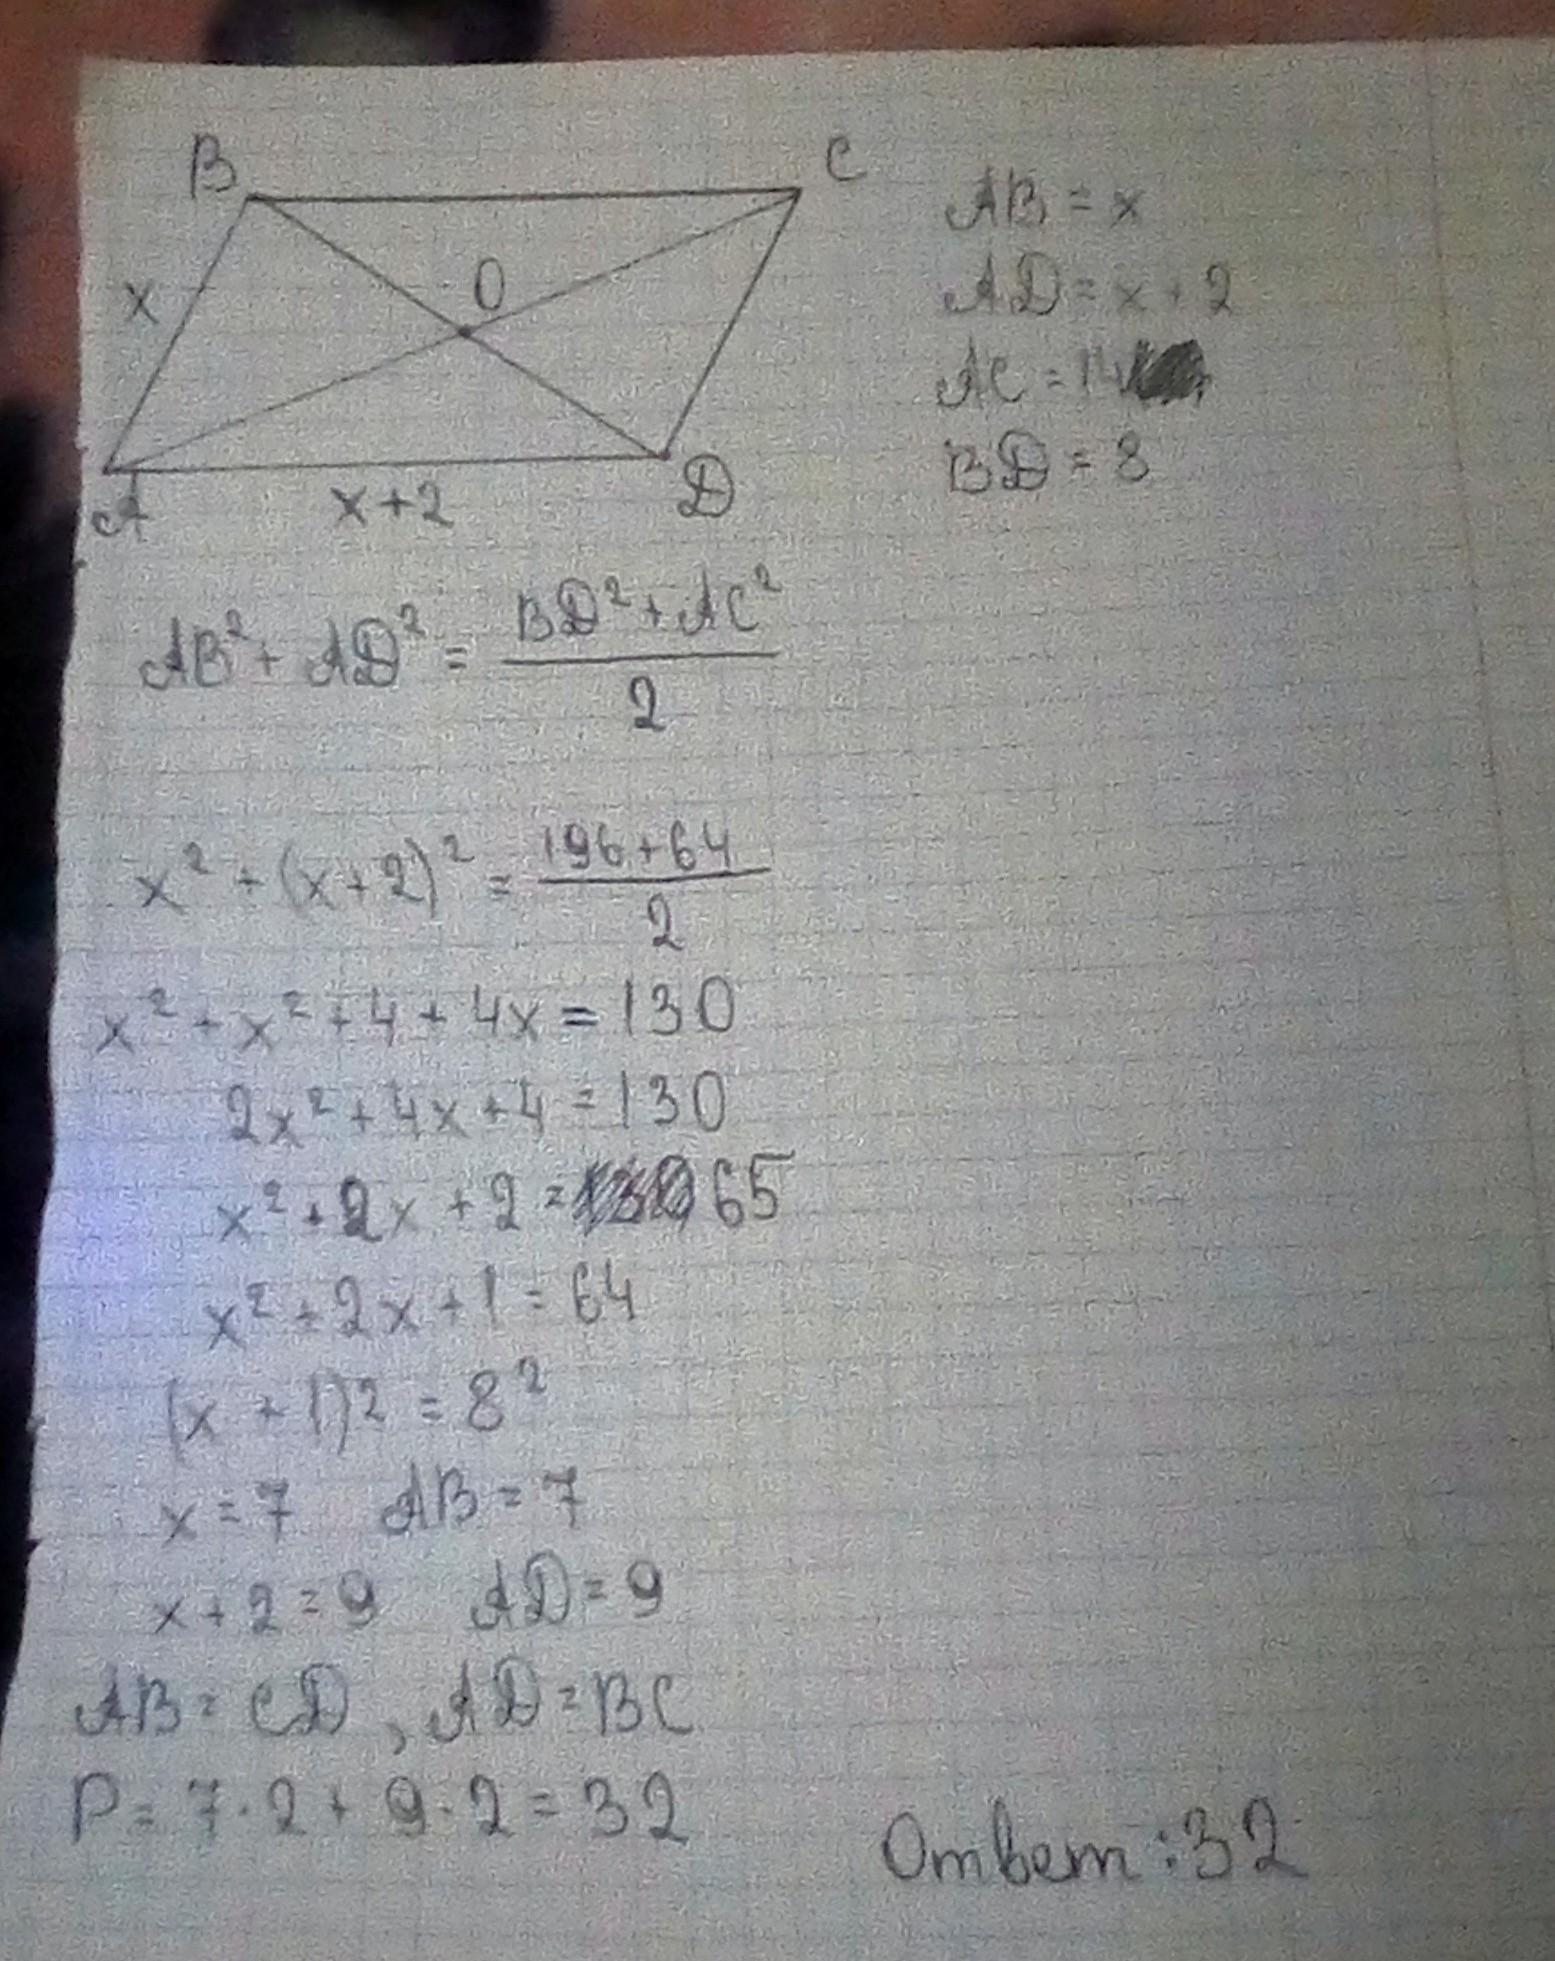 B
C
x
O
A
x+2
D
AB = x
AD = x + 2
AC = 14
BD = 8
AB² + AD² = \frac{BD² + AC²}{2}
x² + (x+2)² = \frac{196+64}{2}
x² + x² + 4 + 4x = 130
2x² + 4x + 4 = 130
x² + 2x + 2 = 65
x² + 2x + 1 = 64
(x + 1)2 = 8²
x = 7 AB = 7
x + 2 = 9 AD = 9
AB = CD , AD = BC
P = 7 · 2 + 9 · 2 = 32
Ответ : 32